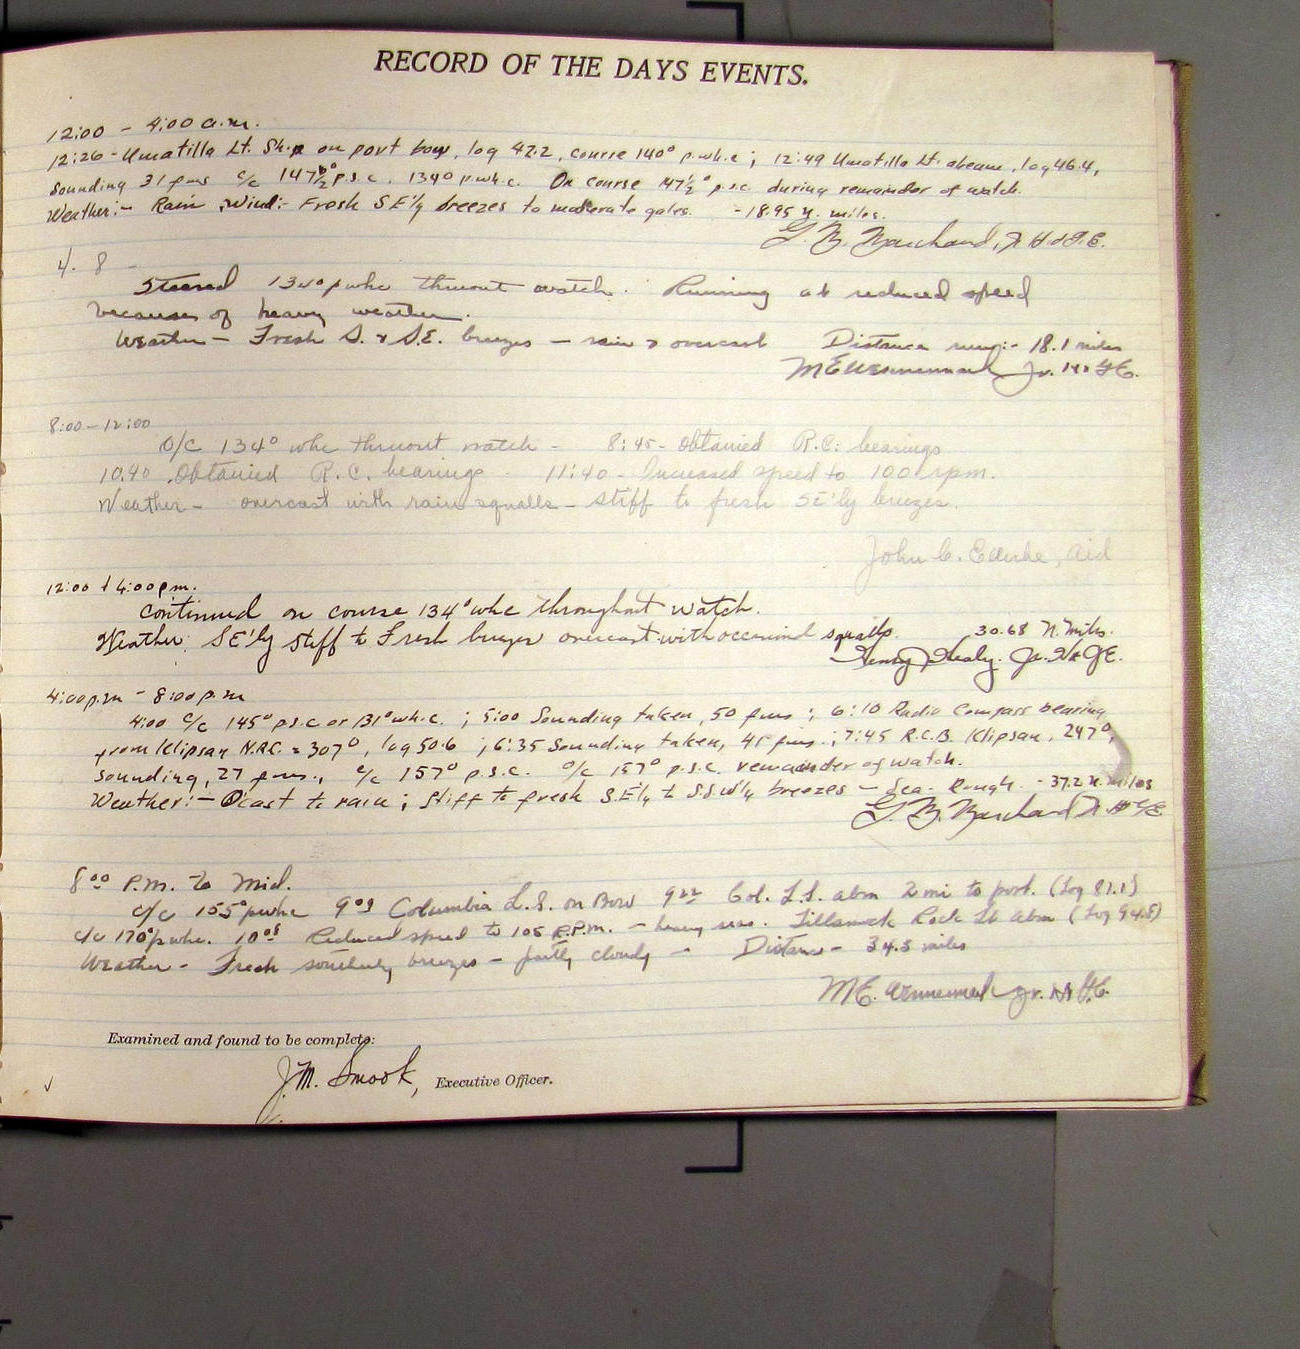 RECORD OF THE DAYS EVENTS.
12:00 - 4:00 a.m.
12:26 - Umatilla Lt. Ship on port bow, log 42.2, course 140° p.wh.c ; 12:49 Umatilla Lt. abeam, log 46.4,
Sounding 31 fms c/c 147½° p.s.c. 134° p.wh.c. On course 147½° p.s.c. during remainder of watch.
Weather:- Rain Wind:- Fresh SE'ly breezes to moderate gales. - 18.95 n. miles.
Jr. H. & G.E.
4. 8
Steered 134° pwhc thruout watch. Running at reduced speed
because of heavy weather.
Weather - Fresh S. & S.E. breezes - rain & overcast Distance run:- 18.1 miles
Jr. H & G.E.
8:00 - 12:00
O/C 134° whc thruout watch - 8:45 - Obtained R.C. bearings
10:40 Obtained R.C. bearings - 11:40 - Increased speed to 100 rpm.
Weather - overcast with rain squalls - stiff to fresh SE'ly breezes.
John C. Aid
12:00 4:00 p.m.
Continued on course 134° whc throughout watch.
Weather: SE'ly stiff to Fresh breezes overcast with occasional squalls. 30.68 N. Miles.
Henry Healy. Jr. H & GE.
4:00 p.m - 8:00 p.m
4:00 c/c 145° p.s.c or 131° wh.c. ; 5:00 Sounding taken, 50 fms ; 6:10 Radio Compass bearing
from Klipsan N.R.C. = 307°, log 50.6 ; 6:35 Sounding taken, 41 fms. ; 7:45 R.C.B. Klipsan. 247°,
Sounding, 27 fms., c/c 157° p.s.c. o/c 157° p.s.c. remainder of watch.
Weather:- O'cast to rain ; Stiff to fresh S.E'ly to SSW'ly breezes - Sea - Rough - 37.2 n. miles
Jr. H & GE
8 00 P.M. to Mid.
c/c 155° pwhc 9 03 Columbia L.S. on Bow 9 22 Col. L.S. abm 2 mi to port. (Log 81.1)
c/c 170° pwhc. 10 05 Reduced speed to 105 R.P.M. - heavy seas. Tillamook Rock Lt abm (Log 94.5)
Weather - Fresh southerly breezes - partly cloudy - Distance - 34.3 miles
Jr. H & G.E.
Examined and found to be complete:
J.M. Smook, Executive Officer.